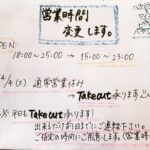 営業時間
変更します。
OPEN
18:00~25:00 → 15:00~23:00
4/4(土) 通常営業休み
→ Takeout承ります
※平日もTakeout承ります!
出来るだけ前日までにご連絡下さい。
ご指定の時間にご用意します。(営業時